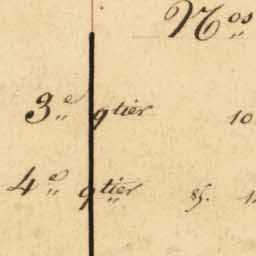 Nos
3e qtier 10
4e qtier